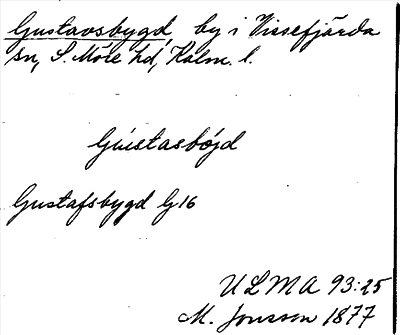 Gustavsbygd, by i Vissefjärda
sn, S. Möre hd, Kalm. l.
Gústasbójd
Gustafsbygd G16
ULMA 93:25
M. Jonsson 1877